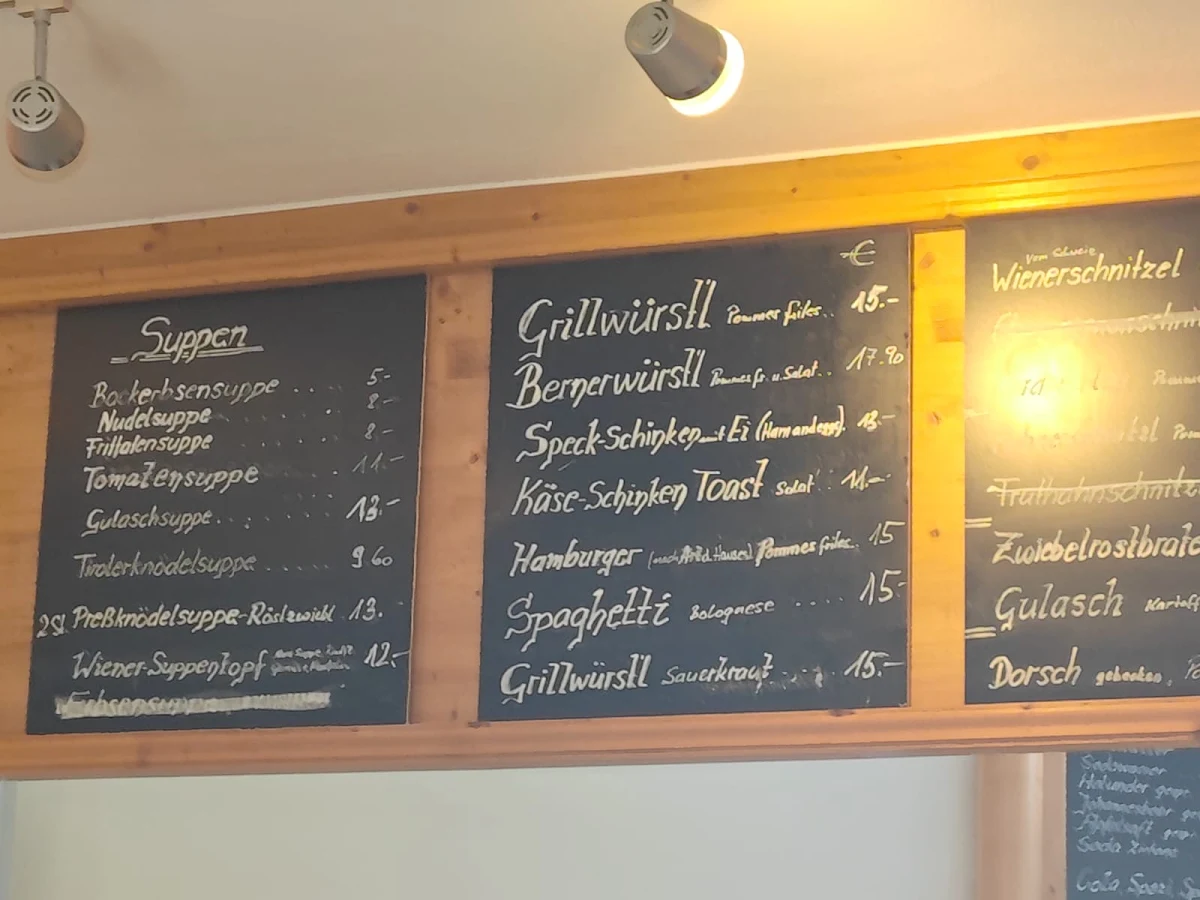 Suppen
Backerbsensuppe .... 5.-
Nudelsuppe .... 8.-
Frittatensuppe .... 8.-
Tomatensuppe .... 11.-
Gulaschsuppe .... 13.-
Tirolerknödelsuppe ...... 9 60
2St. Preßknödelsuppe-Röstzwiebl 13.
Wiener-Suppentopf 12.-
€
Grillwürstl Pommes frites.. 15.-
Bernerwürstl Pommes fr. u. Salat.. 17.90
Speck-Schinken mit Ei (Ham and eggs). 13.-
Käse-Schinken Toast Salat .. 11.-
Hamburger Pommes frites.. 15
Spaghetti Bolognese .... 15.-
Grillwürstl Sauerkraut .... 15.-
Vom Schwein
Wienerschnitzel
Truthahnschnitze
Zwiebelrostbrate
Gulasch
Dorsch gebacken,
Sodawasser
Holunder
Johannesbeer
Apfelsaft
Soda Zitrone
Cola, Spezi, Sp